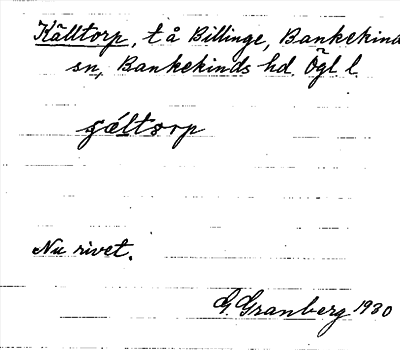 Källtorp, t å Billinge, Bankekind
sn, Bankekinds hd, Ögl l.
gæltorp
Nu rivet.
G. Granberg 1930